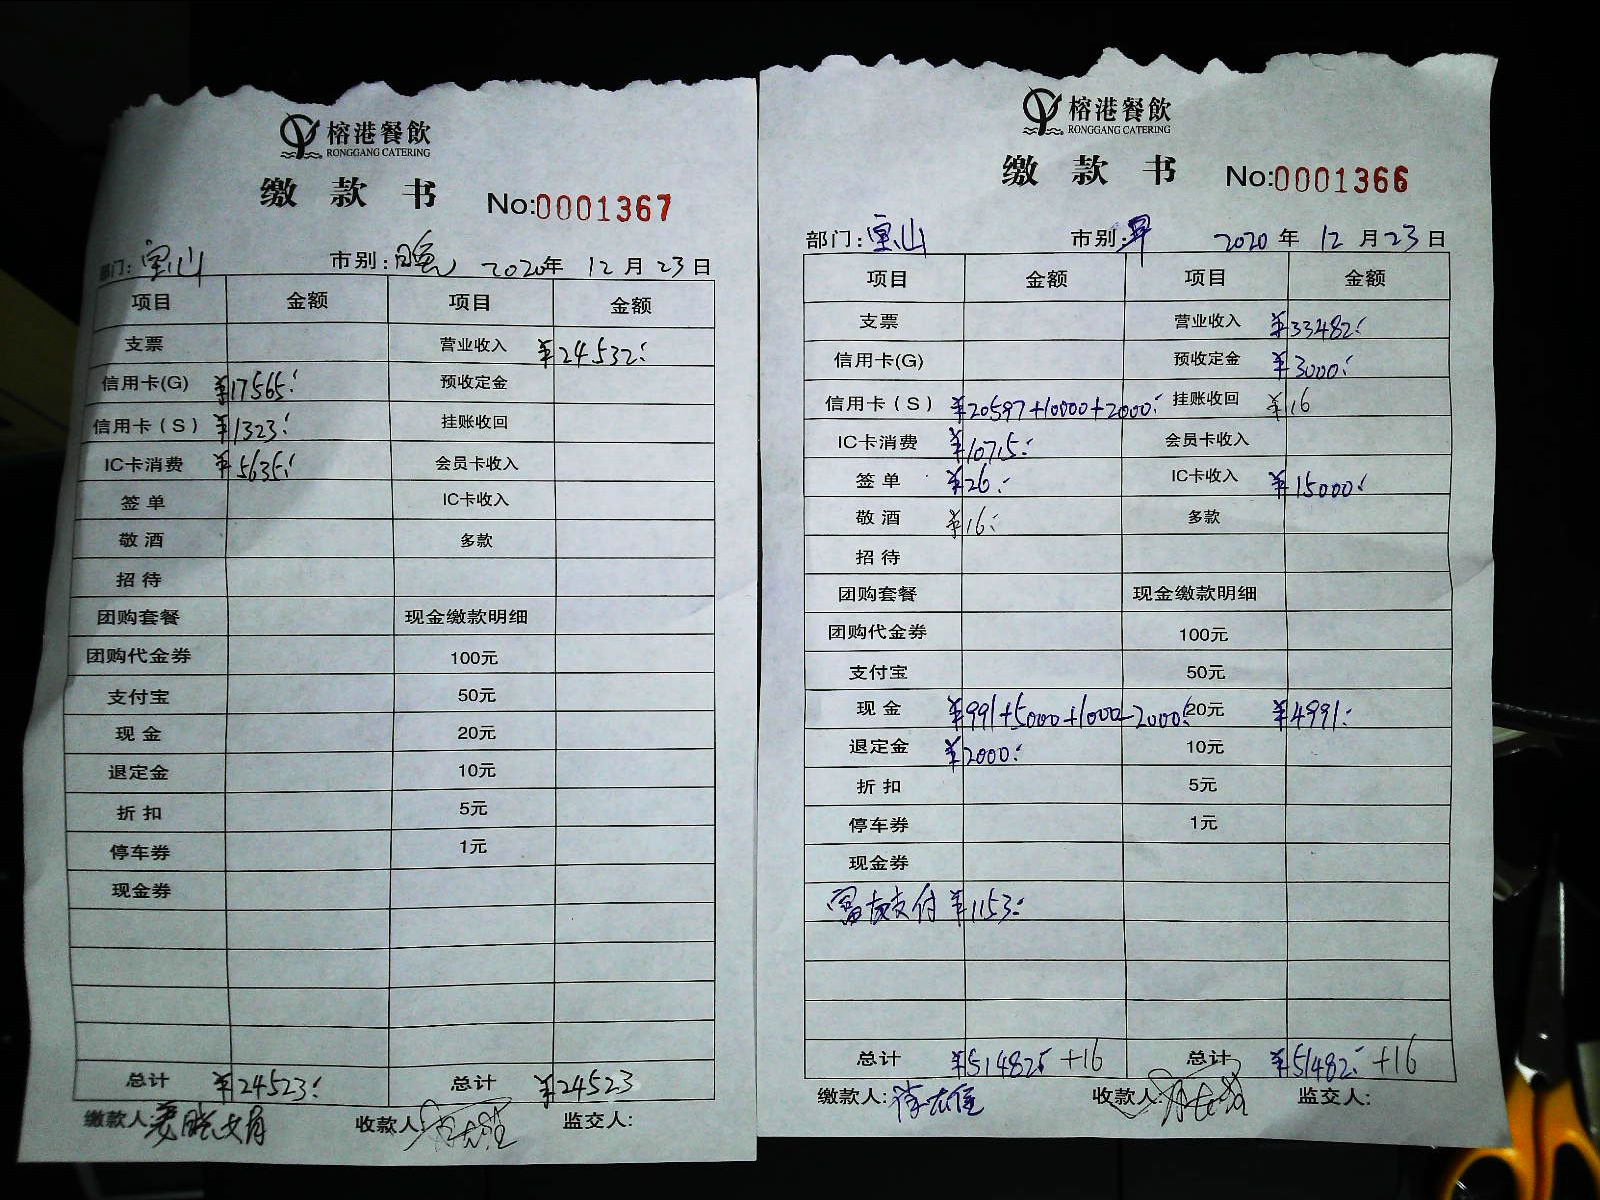 榕港餐飲
RONGGANG CATERING
缴款书
No:0001367
部门:宝山 市别:晚 2020年12月23日
项目 金额 项目 金额
支票 营业收入 ¥24532:
信用卡(G) ¥17565: 预收定金
信用卡(S) ¥1323: 挂账收回
IC卡消费 ¥5635: 会员卡收入
签单 IC卡收入
敬酒 多款
招待
团购套餐 现金缴款明细
团购代金券 100元
支付宝 50元
现金 20元
退定金 10元
折扣 5元
停车券 1元
现金券
总计 ¥24523: 总计 ¥24523
缴款人: 收款人: 监交人:
榕港餐飲
RONGGANG CATERING
缴款书
No:0001366
部门:宝山 市别:早 2020年12月23日
项目 金额 项目 金额
支票 营业收入 ¥33482:
信用卡(G) 预收定金 ¥3000:
信用卡(S) ¥20597+10000+2000: 挂账收回 ¥16
IC卡消费 ¥10715: 会员卡收入
签单 ¥26: IC卡收入 ¥15000:
敬酒 ¥16: 多款
招待
团购套餐 现金缴款明细
团购代金券 100元
支付宝 50元
现金 ¥991+5000+1000-2000: 20元 ¥4991:
退定金 ¥2000: 10元
折扣 5元
停车券 1元
现金券
富友支付 ¥1153:
总计 ¥51482: +16 总计 ¥51482: +16
缴款人: 收款人: 监交人: